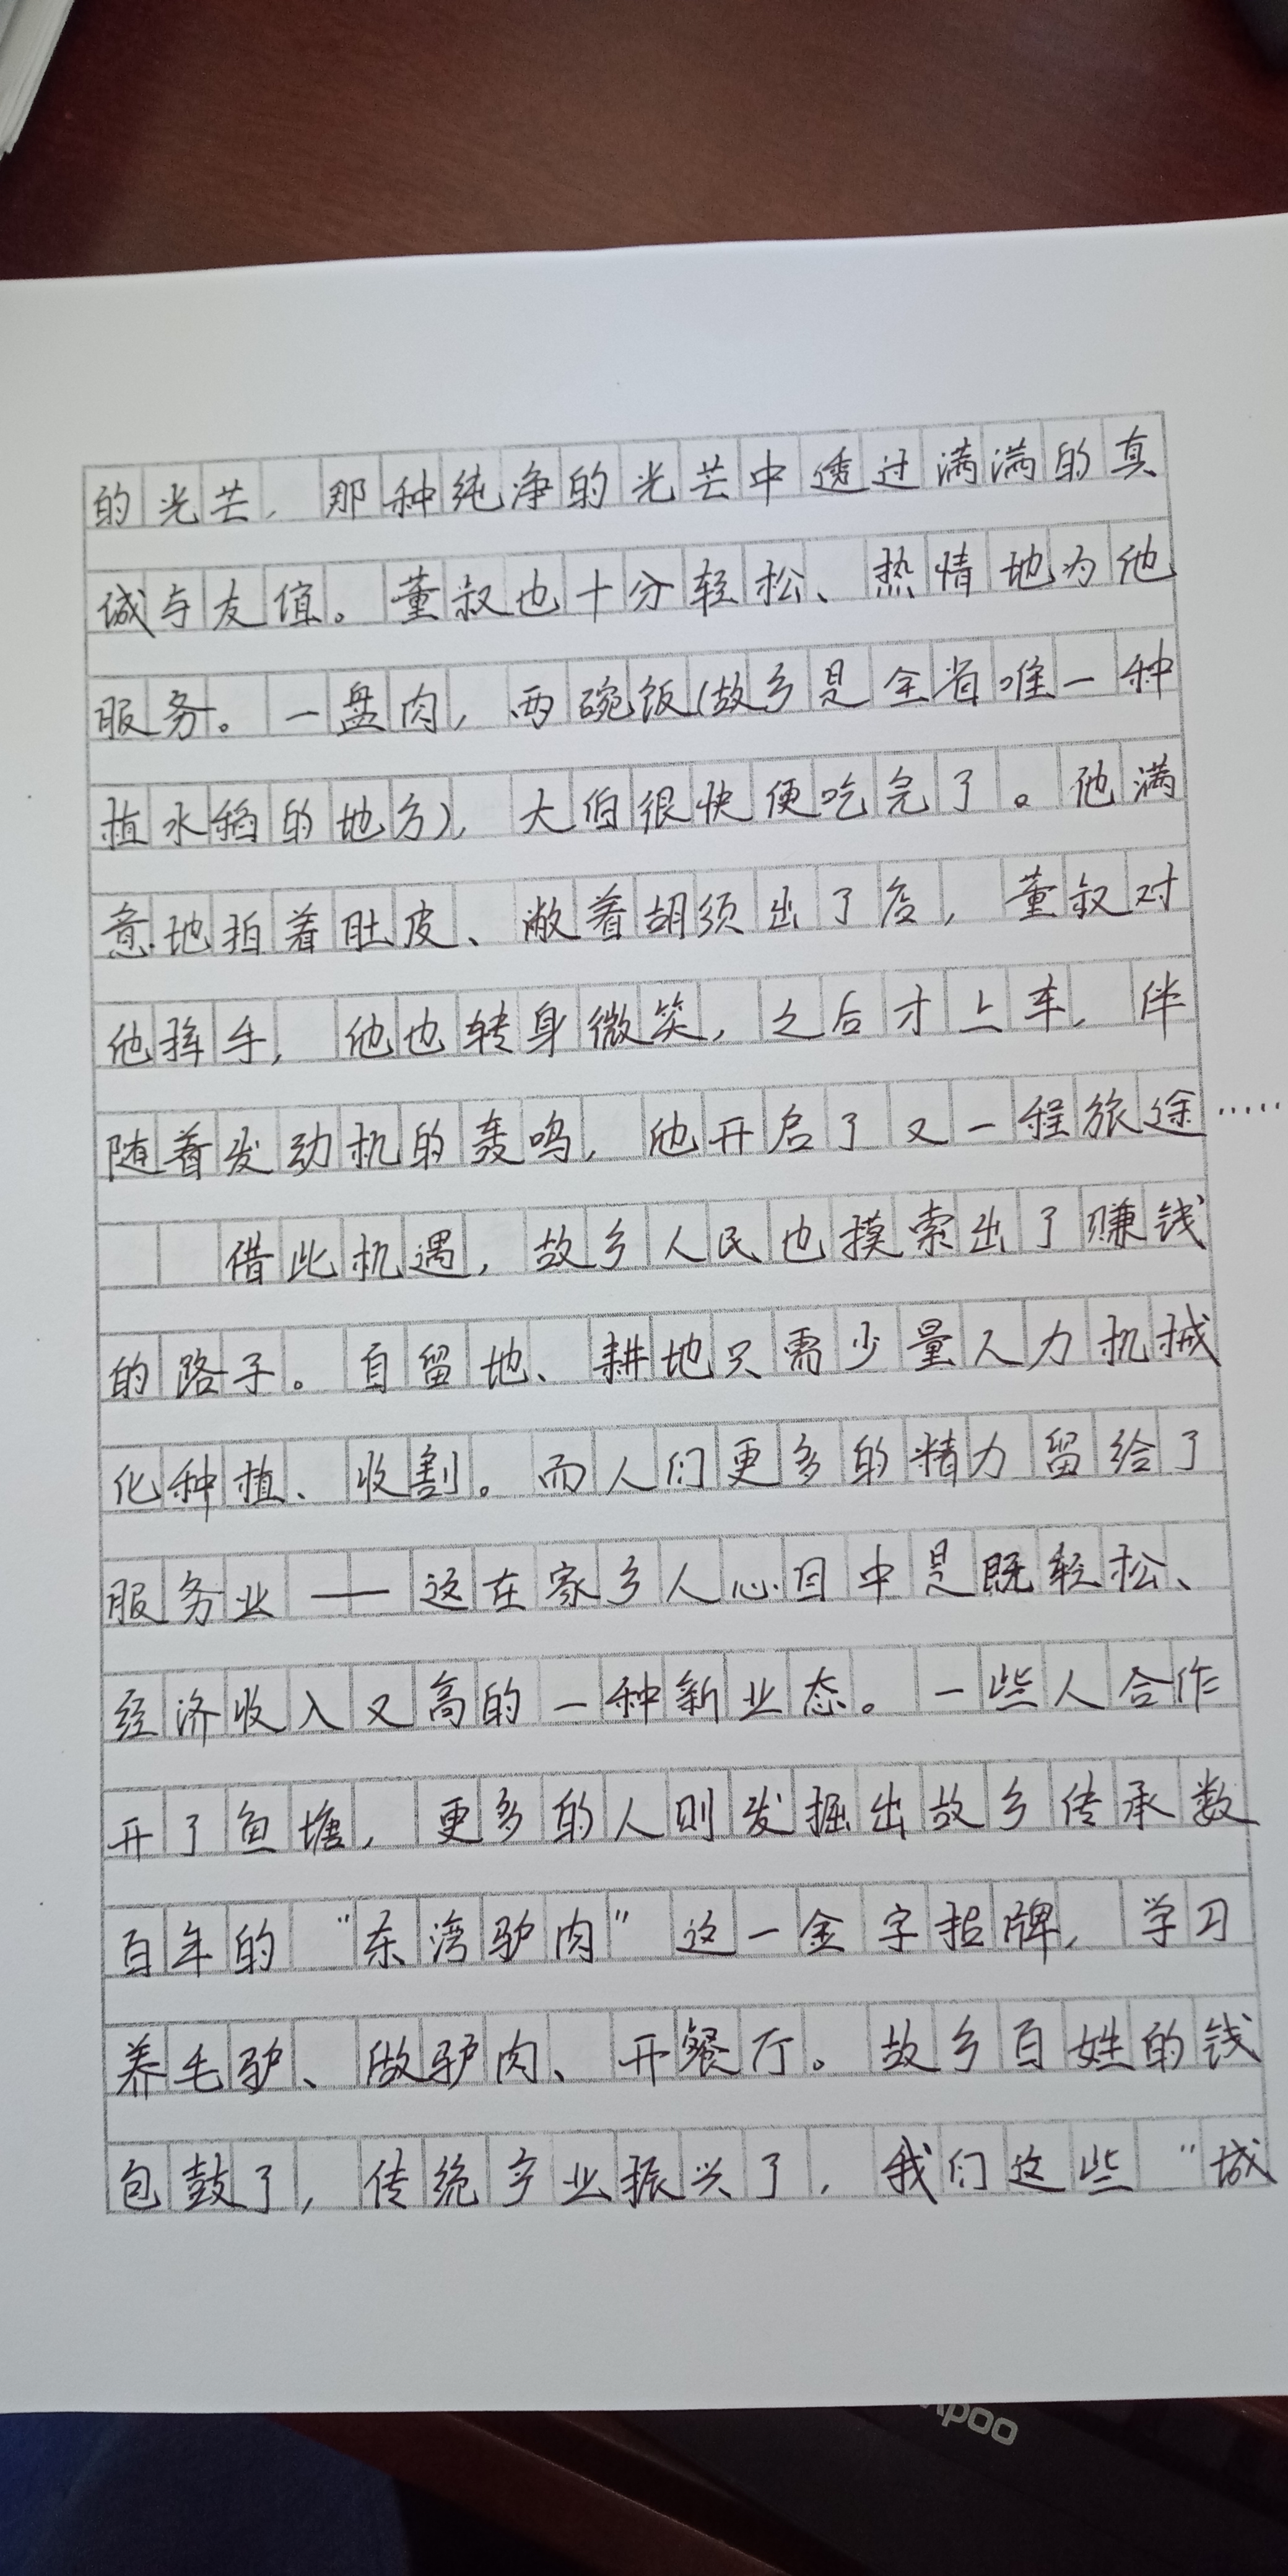 的光芒，那种纯净的光芒中透过满满的真
诚与友谊。董叔也十分轻松、热情地为他
服务。一盘肉，两碗饭(故乡是全省唯一种
植水稻的地方)，大伯很快便吃完了。他满
意地拍着肚皮、撇着胡须出了店，董叔对
他挥手，他也转身微笑，之后才上车，伴
随着发动机的轰鸣，他开启了又一程旅途……
借此机遇，故乡人民也摸索出了赚钱
的路子。自留地、耕地只需少量人力机械
化种植、收割。而人们更多的精力留给了
服务业——这在家乡人心目中是既轻松、
经济收入又高的一种新业态。一些人合作
开了鱼塘，更多的人则发掘出故乡传承数
百年的“东湾驴肉”这一金字招牌，学习
养毛驴、做驴肉、开餐厅。故乡百姓的钱
包鼓了，传统产业振兴了，我们这些“城